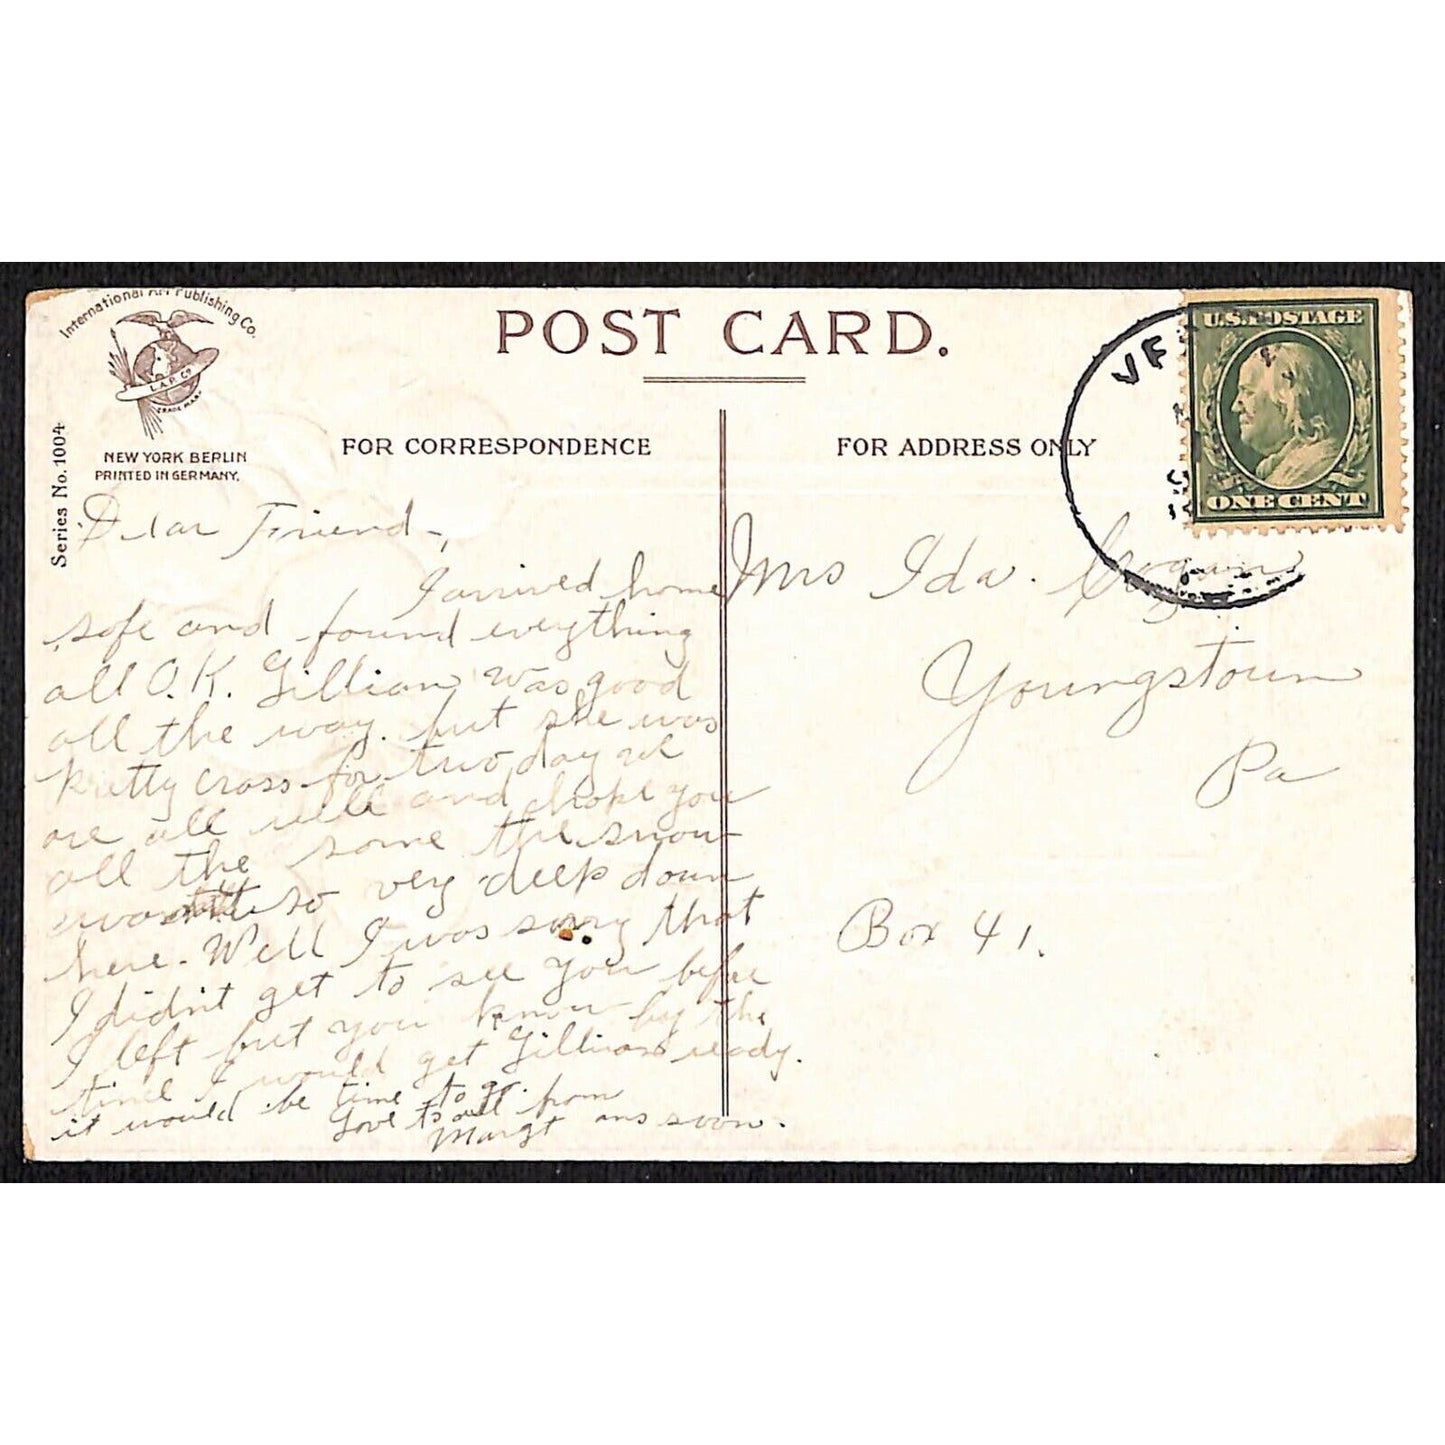 International Art Publishing Co.
I. A. P. Co
TRADE MARK
NEW YORK BERLIN
PRINTED IN GERMANY.
Series No. 1004
POST CARD.
FOR CORRESPONDENCE
FOR ADDRESS ONLY
U.S. POSTAGE
ONE CENT
Dear Friend-,
I arrived home
safe and found everything
all O.K. Lillian was good
all the way. but she was
pretty cross for two day we
are all well and hope you
all the same the snow
was so very deep down
here. Well I was sorry that
I didn't get to see you before
I left but you know by the
time I would get Lillian ready.
it would be time to go.
Love to all from
Margt ans soon.
Mrs Ida.
Youngstown
Pa
Box 41.